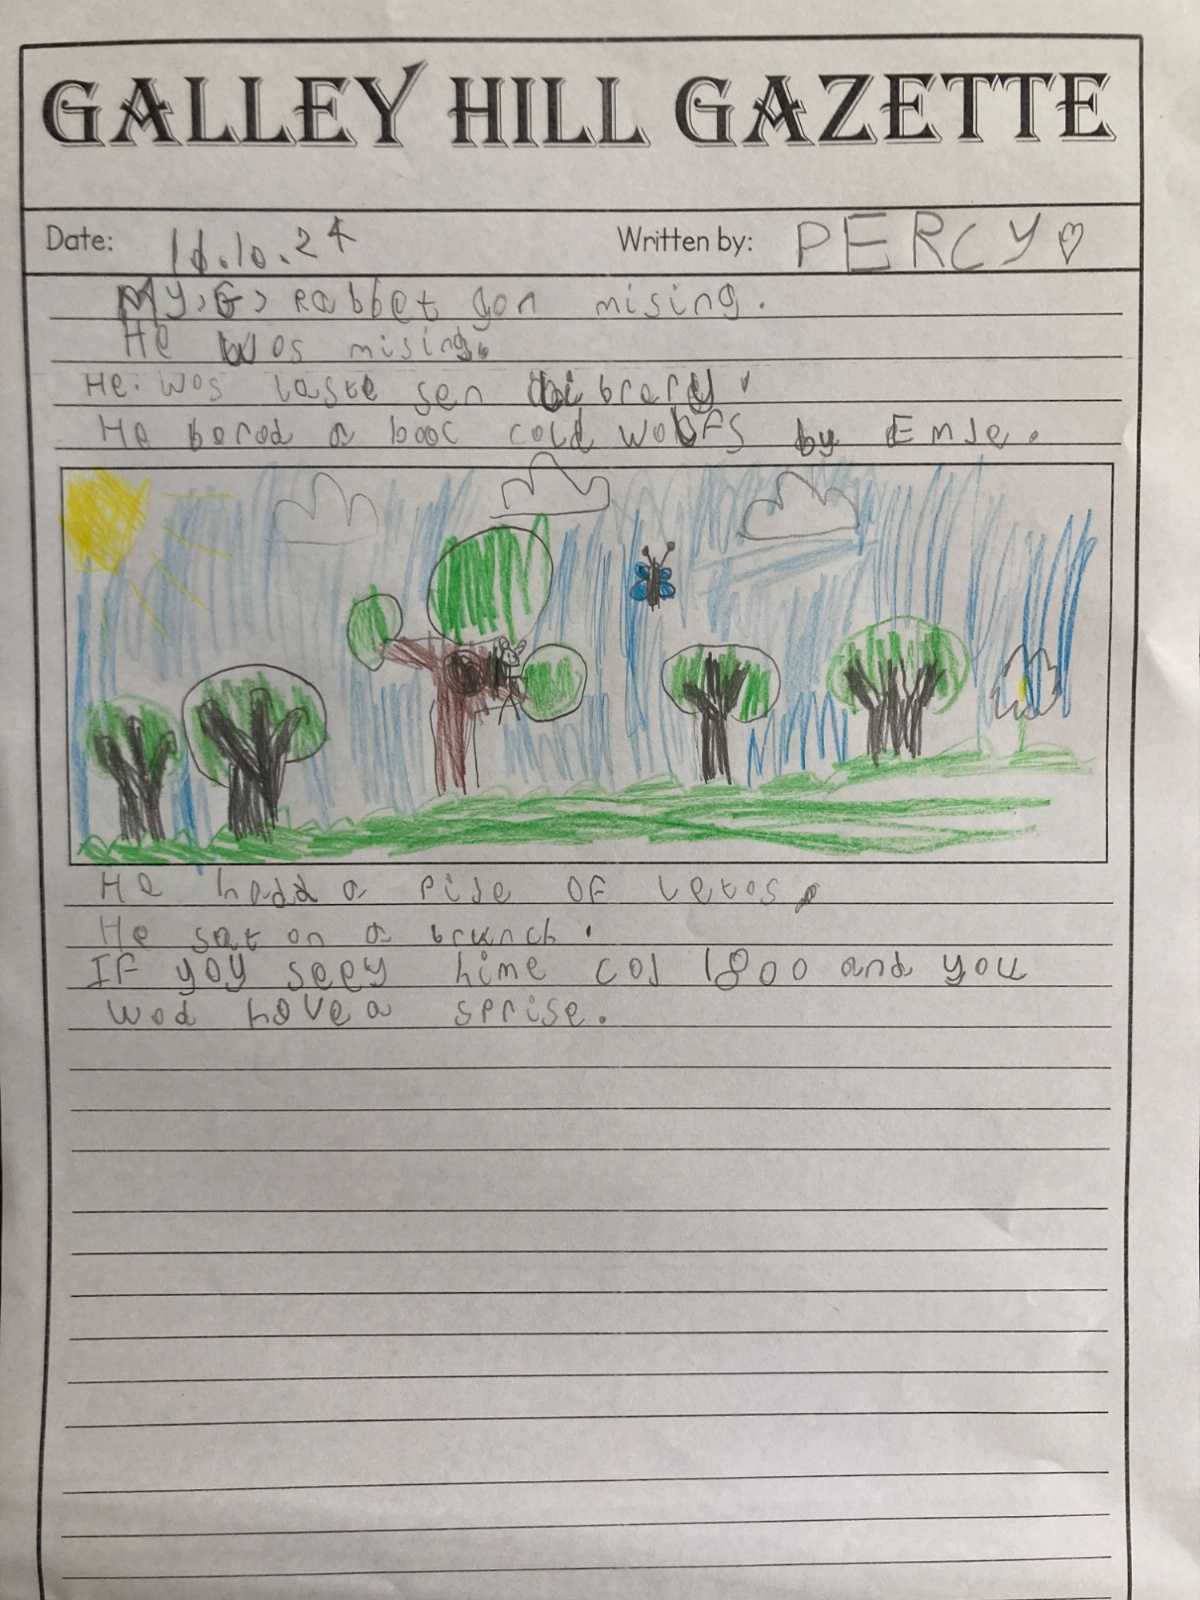 GALLEY HILL GAZETTE
Date: 16.10.24 Written by: PERCY
My, G, Rabbet gon mising.
He wos mising.
He. wos laste sen libirery.
He borod a booc cold wolfs by Emje.
He hadd a pije of letos.
He sat on a brunch.
IF yoy seey hime col 1800 and you
wod hove a sprise.